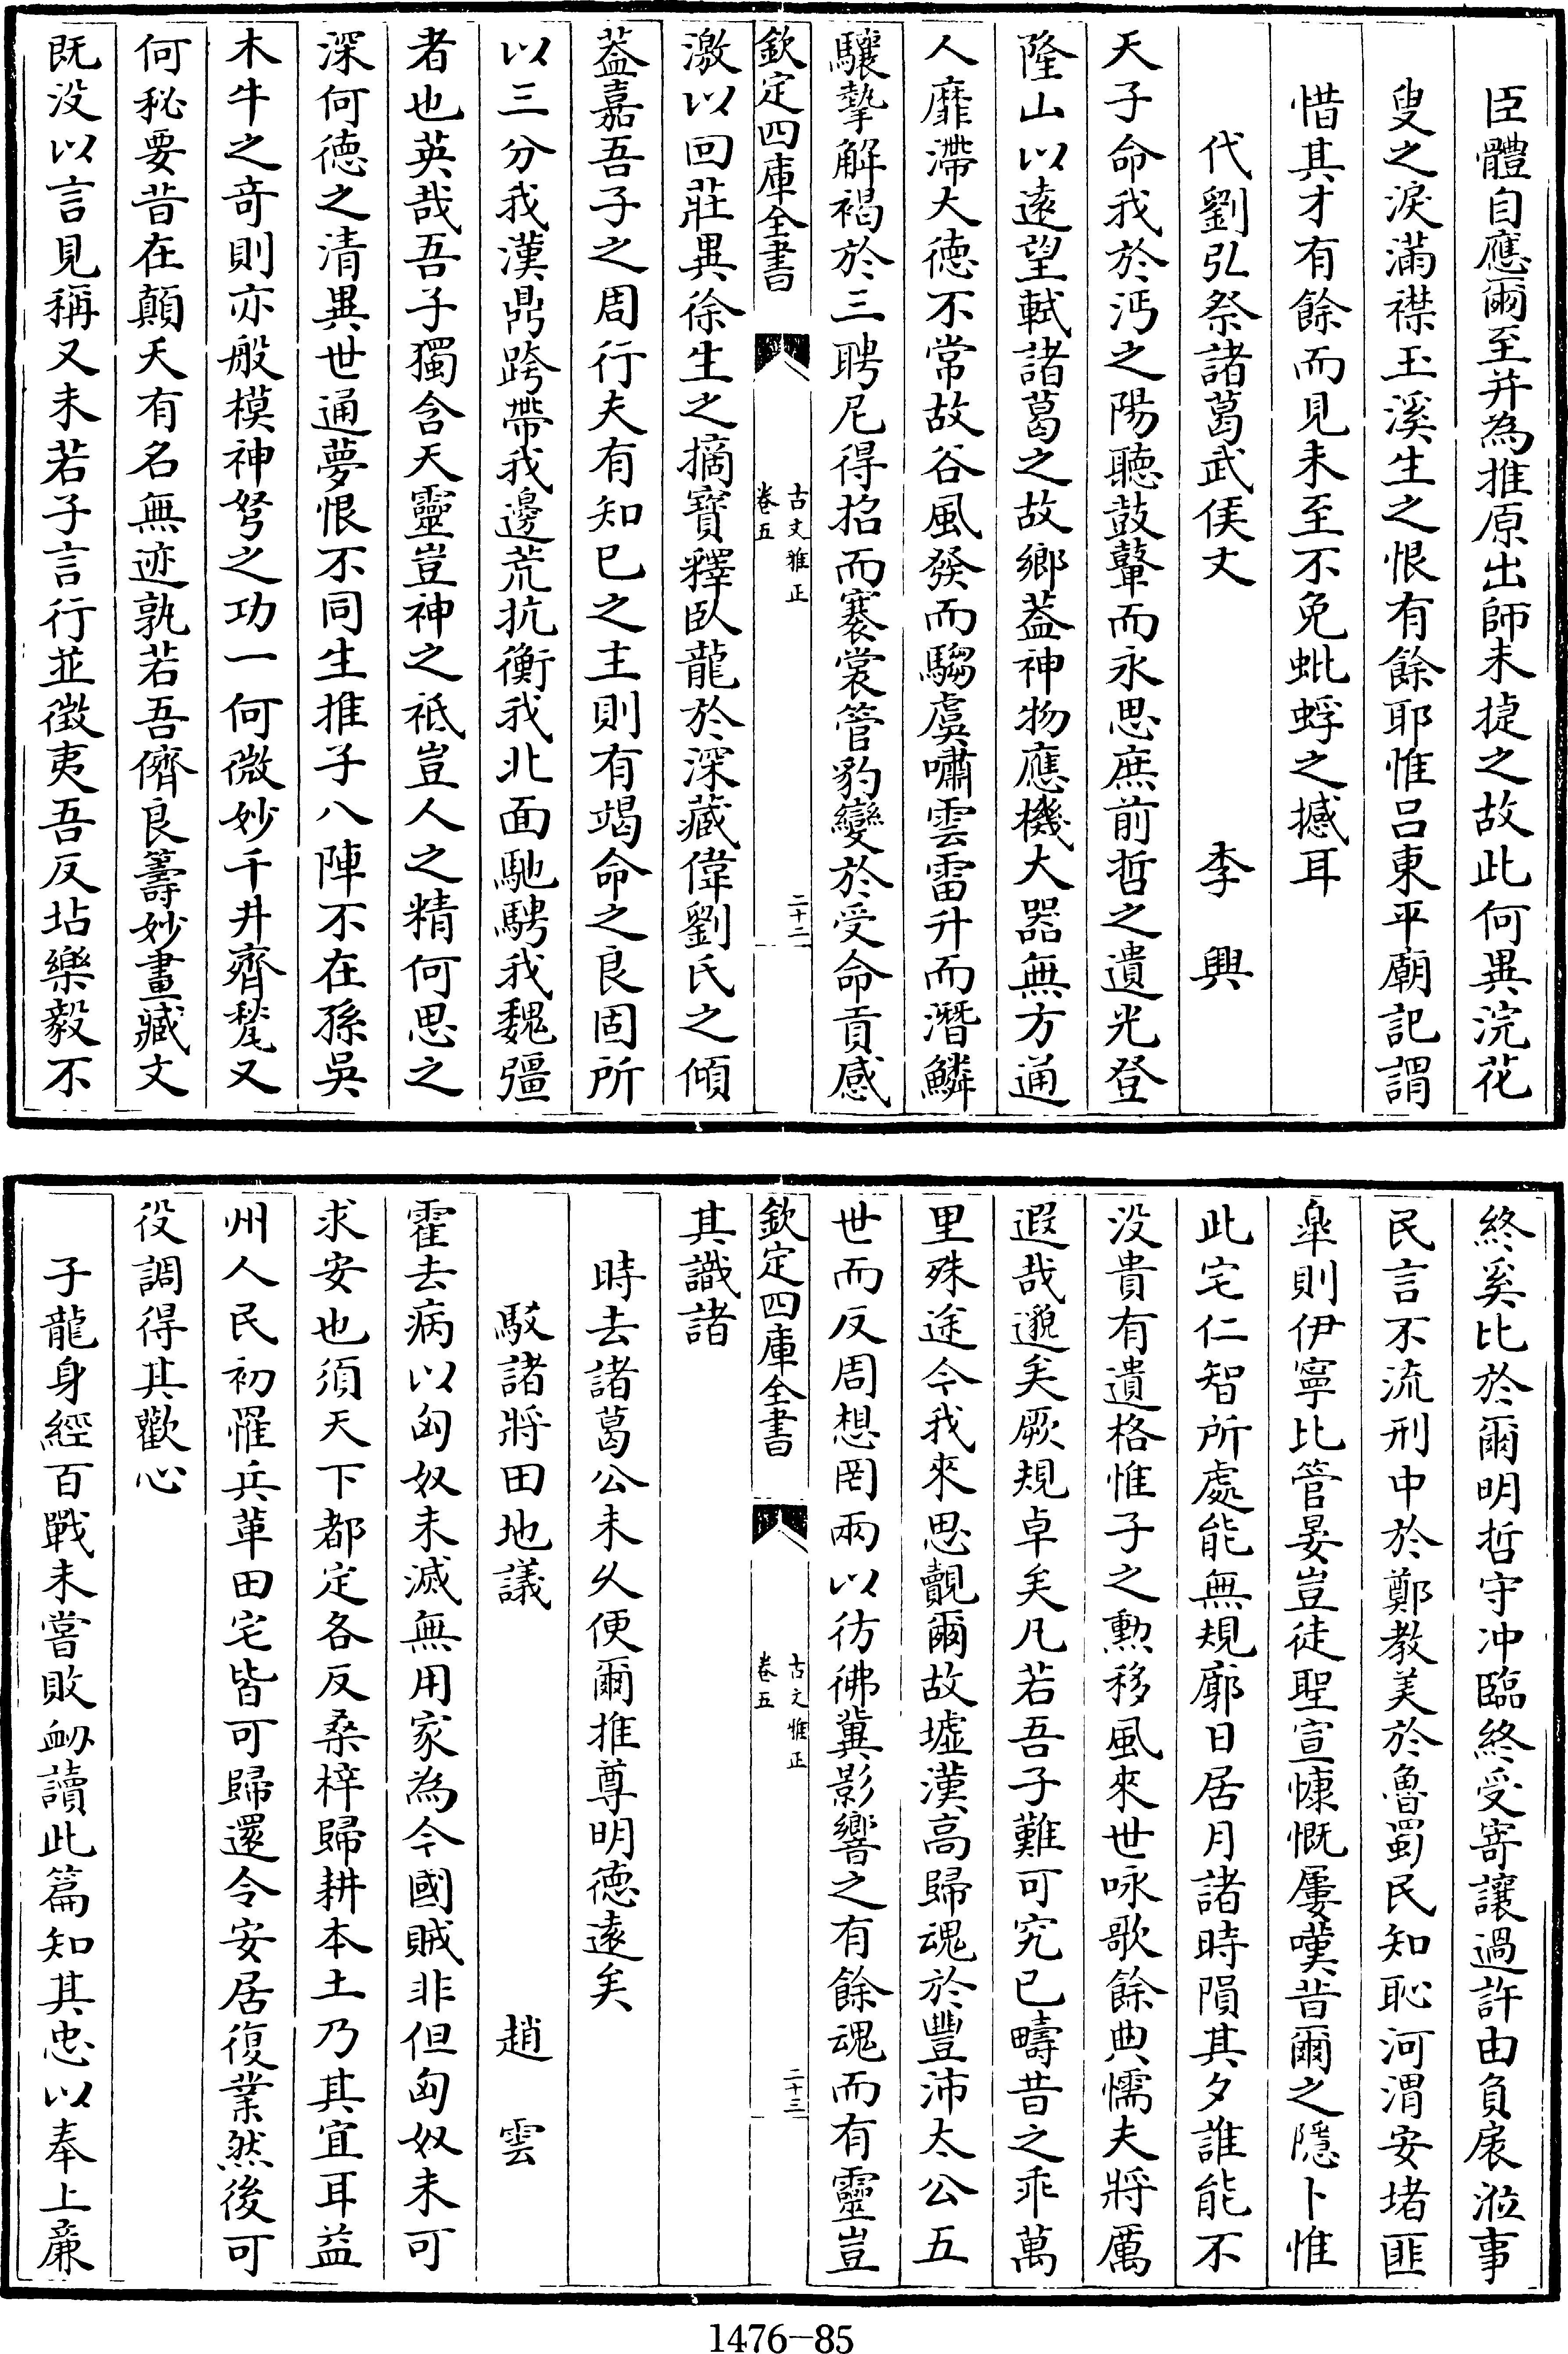 臣體自應爾至并為推原出師未㨗之故此何異浣花
叟之淚滿襟玉溪生之恨有餘耶惟吕東平廟記謂
惜其才有餘而見未至不免蚍蜉之撼耳
代劉弘祭諸葛武侯文 李興
天子命我於沔之陽聽鼓鼙而永思庶前哲之遺光登
隆山以遠望軾諸葛之故鄉葢神物應機大器無方通
人靡滯大德不常故谷風發而騶虞嘯雲雷升而潛鱗
驤摯解褐於三聘尼得招而褰裳管豹變於受命貢感
欽定四庫全書
古文雅正
卷五
二十二
激以回莊異徐生之摘寶釋臥龍於深藏偉劉氏之傾
葢嘉吾子之周行夫有知己之主則有竭命之良固所
以三分我漢鼎跨帶我邊荒抗衡我北面馳騁我魏彊
者也英哉吾子獨含天靈豈神之祗豈人之精何思之
深何德之清異世通夢恨不同生推子八陣不在孫吳
木牛之奇則亦般模神弩之功一何微妙千井齊甃又
何秘要昔在顛夭有名無迹孰若吾儕良籌妙畫臧文
既没以言見稱又未若子言行並徵夷吾反坫樂毅不
終奚比於爾明哲守冲臨終受寄讓過許由負扆涖事
民言不流刑中於鄭教美於魯蜀民知恥河渭安堵匪
臯則伊寧比管晏豈徒聖宣慷慨屢嘆昔爾之隱卜惟
此宅仁智所處能無規廓日居月諸時隕其夕誰能不
没貴有遺格惟子之勲移風來世咏歌餘典懦夫將厲
遐哉邈矣厥規卓矣凡若吾子難可究已疇昔之乖萬
里殊途今我來思覿爾故墟漢高歸魂於豐沛太公五
世而反周想罔兩以彷彿冀影響之有餘魂而有靈豈
欽定四庫全書
古文雅正
卷五
二十三
其識諸
時去諸葛公未久便爾推尊明德逺矣
駁諸將田地議 趙雲
霍去病以匈奴未滅無用家為今國賊非但匈奴未可
求安也須天下都定各反桑梓歸耕本土乃其宜耳益
州人民初罹兵革田宅皆可歸還令安居復業然後可
役調得其歡心
子龍身經百戰未嘗敗衂讀此篇知其忠以奉上亷
1476—85